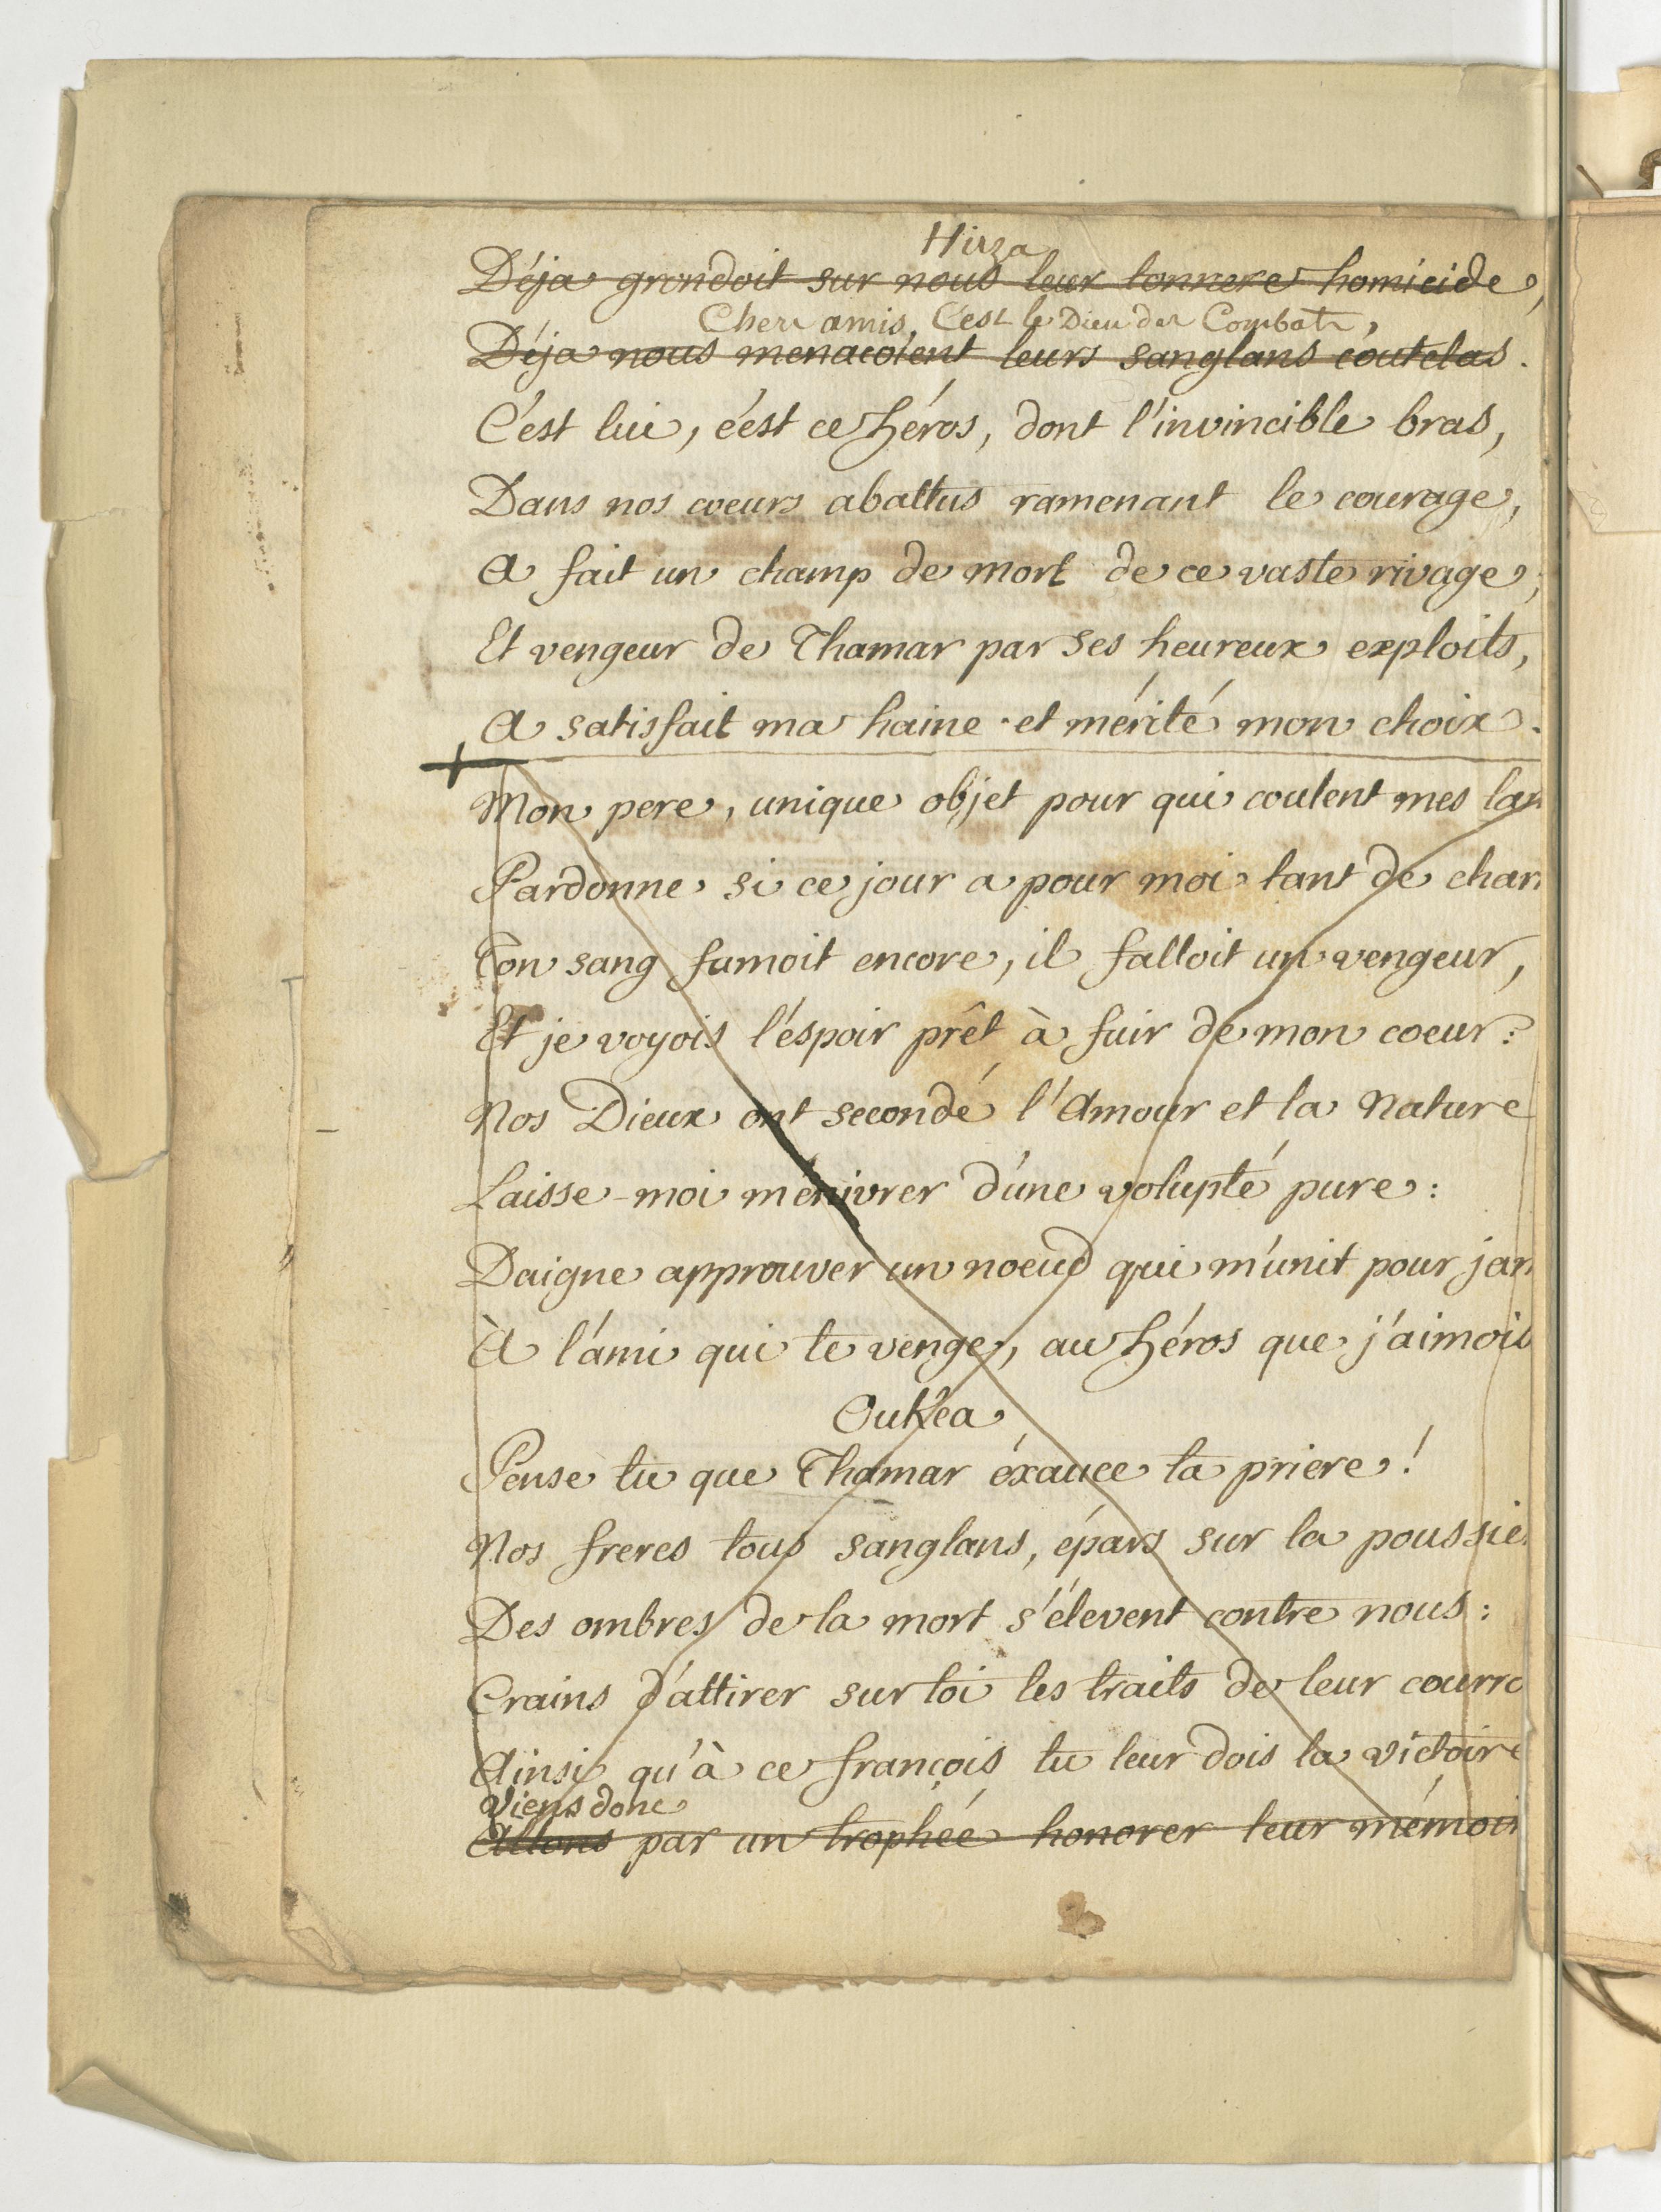 Hirza
Déja grondoit sur nous leur tonnere homicide,
Chers amis, C'est le Dieu des Combats,
Déja nous menacoient leurs sanglans coutelas.
C'est lui, c'est ce héros, dont l'invincible bras,
Dans nos coeurs abattus ramenant le courage,
A fait un champ de mort de ce vaste rivage;
Et vengeur de Thamar par ses heureux exploits,
A satisfait ma haine et mérité mon choix.
Mon pere, unique objet pour qui coulent mes lar
Pardonne si ce jour a pour moi tant de char
Ton sang fumoit encore, il falloit un vengeur,
Et je voyois l'éspoir prêt à fuir de mon coeur:
Nos Dieux ont secondé l'Amour et la Nature
Laisse-moi m'enivrer d'une volupté pure:
Daigne approuver un noeud qui m'unit pour jam
À l'ami qui te venge, au héros que j'aimois
Oukéa
Pense tu que Thamar éxauce ta priere!
Nos freres tous sanglans, épars sur la poussie
Des ombres de la mort s'élevent contre nous:
Crains d'attirer sur toi les traits de leur courro
Ainsi qu'à ce françois tu leur dois la victoire
Viens donc
Allons par un trophée honorer leur mémoi